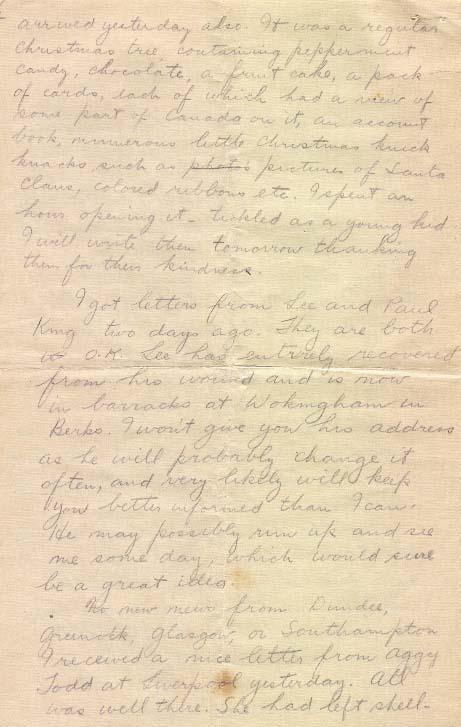 arrived yesterday also. It was a regular
christmas tree, containing peppermint
candy, chocolate, a fruit cake, a pack
of cards, each of which had a view of
some part of Canada on it, an account
book, numerous little christmas knick
knacks such as photos pictures of Santa
Claus, colored ribbons etc. I spent an
hour opening it - tickled as a young kid.
I will write them tomorrow thanking
them for their kindness.
I got letters from Lee and Paul
King two days ago. They are both
O.K. Lee has entirely recovered
from his wound and is now
in barracks at Wokingham in
Berks. I won't give you his address
as he will probably change it
often, and very likely will keep
you better informed than I can.
He may possibly run up and see
me some day, which would sure
be a great idea.
No new news from Dundee,
Greenock, Glasgow, or Southampton
I received a nice letter from Aggy
Todd at Liverpool yesterday. All
was well there. She had left shell-